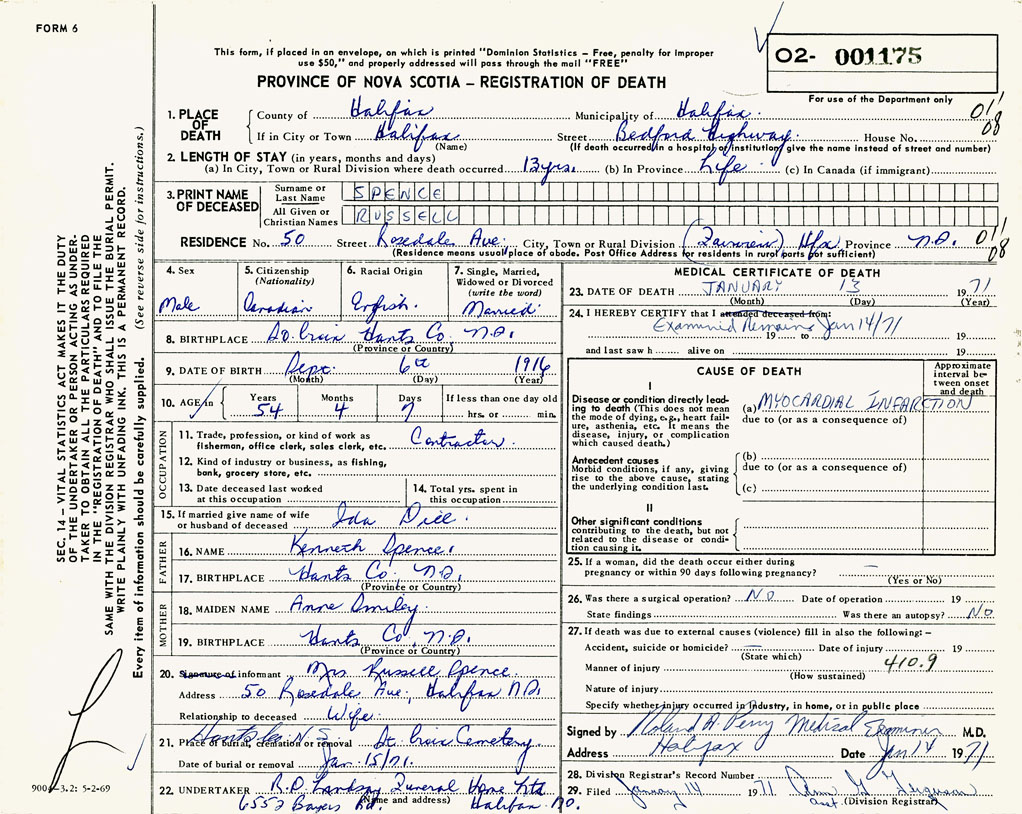 FORM 6
O2- 001175
This form, if placed in an envelope, on which is printed "Dominion Statistics – Free, penalty for improper
use $50," and properly addressed will pass through the mail "FREE"
PROVINCE OF NOVA SCOTIA – REGISTRATION OF DEATH
For use of the Department only
1. PLACE OF DEATH
County of Halifax Municipality of Halifax. 01'
08
If in City or Town Halifax Street Bedford Highway. House No.
(Name) (If death occurred in a hospital or institution, give the name instead of street and number)
2. LENGTH OF STAY (in years, months and days)
(a) In City, Town or Rural Division where death occurred 13 yrs. (b) In Province Life (c) In Canada (if immigrant)
3. PRINT NAME OF DECEASED
Surname or Last Name SPENCE
All Given or Christian Names RUSSELL
RESIDENCE No. 50 Street Rosedale Ave. City, Town or Rural Division (Fairview) Hfx Province N.S. 01'
08
(Residence means usual place of abode. Post Office Address for residents in rural parts not sufficient)
4. Sex
Male
5. Citizenship
(Nationality)
Canadian
6. Racial Origin
English.
7. Single, Married,
Widowed or Divorced
(write the word)
Married.
8. BIRTHPLACE St. Croix Hants Co. N.S.
(Province or Country)
9. DATE OF BIRTH Sept. 6th 1916
(Month) (Day) (Year)
10. AGE in
Years Months Days If less than one day old
54 4 7 hrs. or min.
OCCUPATION
11. Trade, profession, or kind of work as
fisherman, office clerk, sales clerk, etc. Contractor.
12. Kind of industry or business, as fishing,
bank, grocery store, etc.
13. Date deceased last worked
at this occupation
14. Total yrs. spent in
this occupation
15. If married give name of wife
or husband of deceased Ida Dill.
FATHER
16. NAME Kenneth Spence.
17. BIRTHPLACE Hants Co. N.S.
(Province or Country)
MOTHER
18. MAIDEN NAME Anne Smiley.
19. BIRTHPLACE Hants Co. N.S.
(Province or Country)
20. Signature of informant Mrs Russell Spence
Address 50 Rosedale Ave. Halifax N.S.
Relationship to deceased Wife.
N.S.
21. Place of burial, cremation or removal St. Croix Cemetery.
Date of burial or removal Jan. 15/71.
22. UNDERTAKER Funeral Home Ltd
(Name and address)
6552 Bayers Rd. Halifax N.S.
MEDICAL CERTIFICATE OF DEATH
23. DATE OF DEATH JANUARY 13 1971
(Month) (Day) (Year)
24. I HEREBY CERTIFY that I attended deceased from:
Examined Remains Jan 14/71
19 to 19
and last saw h alive on 19
CAUSE OF DEATH
Approximate
interval be-
tween onset
and death
I
Disease or condition directly lead-
ing to death (This does not mean
the mode of dying, e.g., heart fail-
ure, asthenia, etc. It means the
disease, injury, or complication
which caused death.)
(a) MYOCARDIAL INFARCTION
due to (or as a consequence of)
Antecedent causes
Morbid conditions, if any, giving
rise to the above cause, stating
the underlying condition last.
(b)
due to (or as a consequence of)
(c)
II
Other significant conditions
contributing to the death, but not
related to the disease or condi-
tion causing it.
25. If a woman, did the death occur either during
pregnancy or within 90 days following pregnancy? –
(Yes or No)
26. Was there a surgical operation? NO Date of operation 19
State findings Was there an autopsy? NO
27. If death was due to external causes (violence) fill in also the following: –
Accident, suicide or homicide? — Date of injury 19
(State which)
Manner of injury 410.9
(How sustained)
Nature of injury
Specify whether injury occurred in Industry, in home, or in public place
Signed by Roland A. Perry Medical Examiner M.D.
Address Halifax Date Jan 14 1971
28. Division Registrar's Record Number
29. Filed January 14 1971 Ann G Ferguson
asst. (Division Registrar)
SEC. 14 – VITAL STATISTICS ACT MAKES IT THE DUTY
OF THE UNDERTAKER OR PERSON ACTING AS UNDER-
TAKER TO OBTAIN ALL THE PARTICULARS REQUIRED
IN THE "REGISTRATION OF DEATH" AND TO FILE THE
SAME WITH THE DIVISION REGISTRAR WHO SHALL ISSUE THE BURIAL PERMIT.
WRITE PLAINLY WITH UNFADING INK. THIS IS A PERMANENT RECORD.
Every item of information should be carefully supplied. (See reverse side for instructions.)
5-2-69